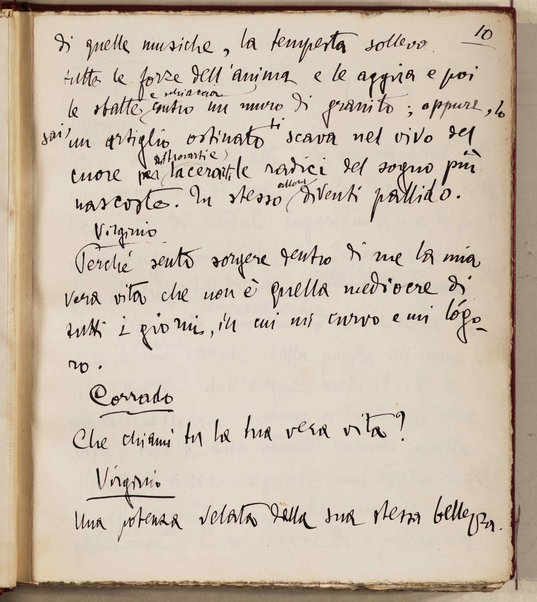 10
di quelle musiche, la tempesta solleva
tutte le forze dell'anima e le aggira e poi
le sbatte e schiaccia contro un muro di granito; oppure, lo
sai, un artiglio ostinato ti scava nel vivo del
cuore per lacerarti le radici del sogno più
nascoste. Tu stesso allora diventi pallido.
Virginio
Perché sento sorgere dentro di me la mia
vera vita che non è quella mediocre di
tutti i giorni, in cui mi curvo e mi lógo-
ro.
Corrado
Che chiami tu la tua vera vita?
Virginio
Una potenza velata dalla sua stessa bellezza.